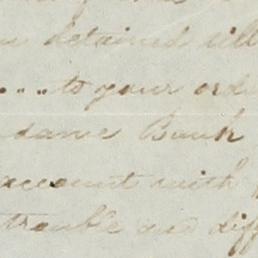 detained till
....to your ord
same Bank
account with
trouble and diff